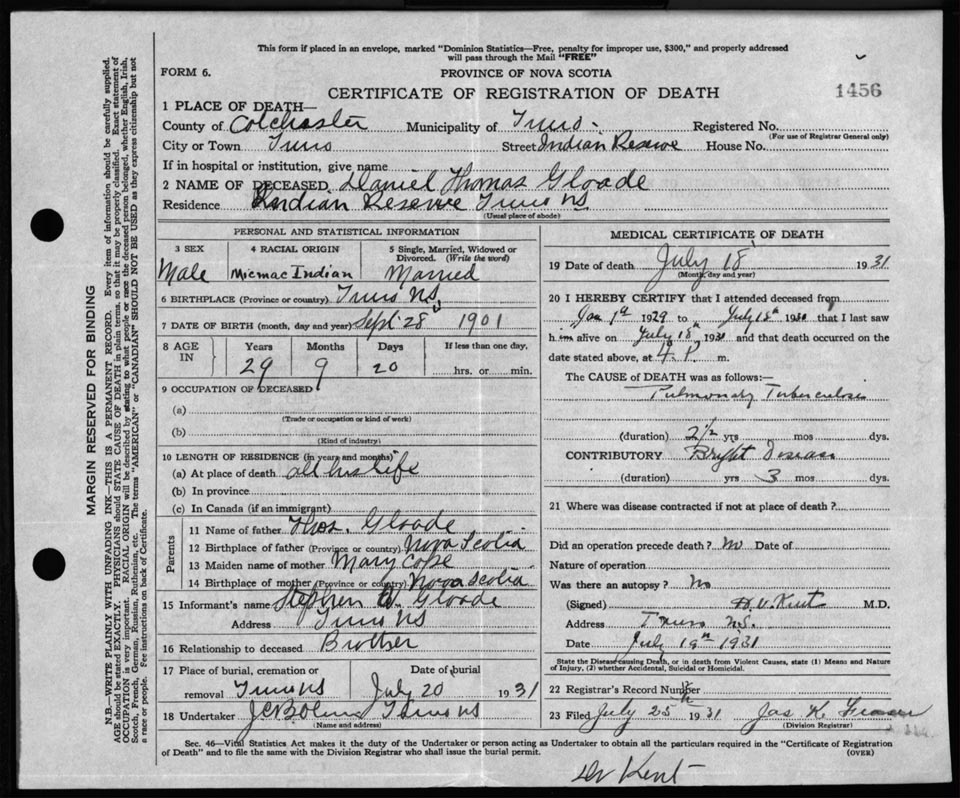 This form if placed in an envelope, marked "Dominion Statistics—Free, penalty for improper use, $300," and properly addressed
will pass through the Mail "FREE"
FORM 6.
PROVINCE OF NOVA SCOTIA
CERTIFICATE OF REGISTRATION OF DEATH
1456
1 PLACE OF DEATH—
County of Colchester Municipality of Truro. Registered No.
(For use of Registrar General only)
City or Town Truro Street Indian Reserve House No.
If in hospital or institution, give name
2 NAME OF DECEASED Daniel Thomas Gloade
Residence Indian Reserve Truro NS
(Usual place of abode)
PERSONAL AND STATISTICAL INFORMATION
3 SEX 4 RACIAL ORIGIN 5 Single, Married, Widowed or Divorced. (Write the word)
Male Micmac Indian Married
6 BIRTHPLACE (Province or country) Truro NS
7 DATE OF BIRTH (month, day and year) Sept 28 1901
8 AGE IN Years Months Days If less than one day,
29 9 20 hrs. or min.
9 OCCUPATION OF DECEASED
(a)
(Trade or occupation or kind of work)
(b)
(Kind of industry)
10 LENGTH OF RESIDENCE (in years and months)
(a) At place of death all his life
(b) In province
(c) In Canada (if an immigrant)
Parents
11 Name of father Thos. Gloade
12 Birthplace of father (Province or country) Nova Scotia
13 Maiden name of mother Mary Cope
14 Birthplace of mother (Province or country) Nova Scotia
15 Informant's name Stephen Gloade
Address Truro NS
16 Relationship to deceased Brother
17 Place of burial, cremation or Date of burial
removal Truro NS July 20 1931
18 Undertaker Truro NS
(Name and address)
MEDICAL CERTIFICATE OF DEATH
19 Date of death July 18 1931
(Month, day and year)
20 I HEREBY CERTIFY that I attended deceased from
Jan 1st 1929 to July 18th 1931 that I last saw
him alive on July 18th 1931 and that death occurred on the
date stated above, at 4 P. m.
The CAUSE of DEATH was as follows:—
Pulmonary Tuberculosis
(duration) 2 1/2 yrs mos dys.
CONTRIBUTORY Bright Disease
(duration) yrs 3 mos dys.
21 Where was disease contracted if not at place of death?
Did an operation precede death? no Date of
Nature of operation
Was there an autopsy? No
(Signed) H.V. Kent M.D.
Address Truro N.S.
Date July 19th 1931
State the Disease causing Death, or in death from Violent Causes, state (1) Means and Nature
of Injury, (2) whether Accidental, Suicidal or Homicidal.
22 Registrar's Record Number
23 Filed July 25th 1931 Jas K.
(Division Registrar)
Sec. 46—Vital Statistics Act makes it the duty of the Undertaker or person acting as Undertaker to obtain all the particulars required in the "Certificate of Registration
of Death" and to file the same with the Division Registrar who shall issue the burial permit. (OVER)
Dr Kent
MARGIN RESERVED FOR BINDING
N.B.—WRITE PLAINLY WITH UNFADING INK—THIS IS A PERMANENT RECORD. Every item of information should be carefully supplied.
AGE should be stated EXACTLY. PHYSICIANS should STATE CAUSE OF DEATH in plain terms, so that it may be properly classified. Exact statement of
OCCUPATION is very important. RACIAL ORIGIN will be described by stating to what people or race the deceased person belonged, whether English, Irish,
Scotch, French, German, Russian, Ruthenian, etc. The terms "AMERICAN" or "CANADIAN" SHOULD NOT BE USED as they express citizenship but not
a race or people. See instructions on back of Certificate.